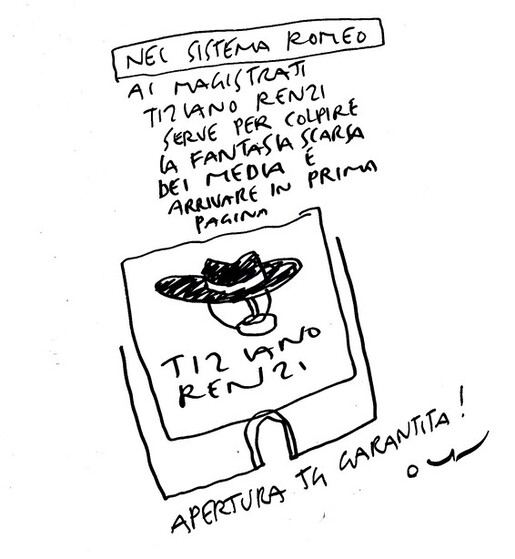 NEL SISTEMA ROMEO
AI MAGISTRATI
TIZIANO RENZI
SERVE PER COLPIRE
LA FANTASIA SCARSA
DEI MEDIA E
ARRIVARE IN PRIMA
PAGINA
TIZIANO
RENZI
APERTURA TG GARANTITA!